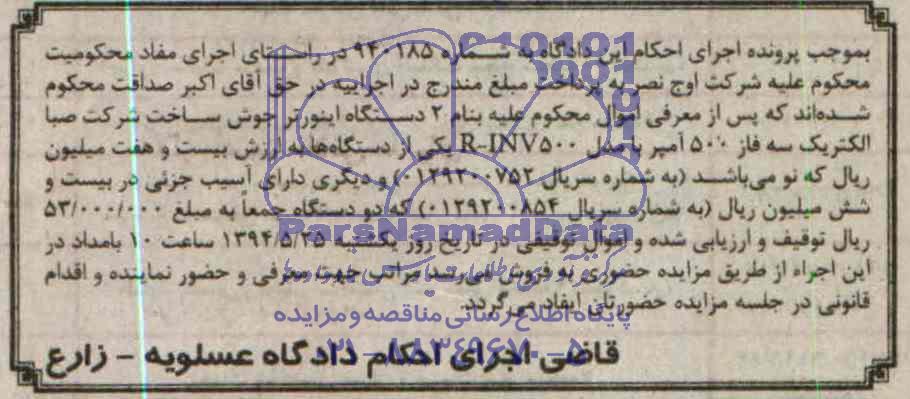 بموجب پرونده اجرای احکام این دادگاه به شماره ۹۴۰۱۸۵ در راستای اجرای مفاد محکومیت
محکوم علیه شرکت اوج نصر به پرداخت مبلغ مندرج در اجراییه در حق آقای اکبر صداقت محکوم
شده‌اند که پس از معرفی اموال محکوم علیه بنام ۲ دستگاه اینورتر جوش ساخت شرکت صبا
الکتریک سه فاز ۵۰۰ آمپر با مدل R-INV۵۰۰ یکی از دستگاه‌ها به ارزش بیست و هفت میلیون
ریال که نو می‌باشد (به شماره سریال ۰۱۲۹۲۰۰۷۵۲) و دیگری دارای آسیب جزئی در بیست و
شش میلیون ریال (به شماره سریال ۰۱۲۹۲۰۰۸۵۴) که دو دستگاه جمعاً به مبلغ ۵۳/۰۰۰/۰۰۰
ریال توقیف و ارزیابی شده و اموال توقیفی در تاریخ روز یکشنبه ۱۳۹۴/۵/۲۵ ساعت ۱۰ بامداد در
این اجراء از طریق مزایده حضوری به فروش می‌رسد مراتب جهت معرفی و حضور نماینده و اقدام
قانونی در جلسه مزایده حضورتان ایفاد می‌گردد.
قاضی اجرای احکام دادگاه عسلویه - زارع
ParsNamadData
پایگاه اطلاع رسانی مناقصه و مزایده
۰۲۱-۸۸۳۴۹۶۷۰-۵